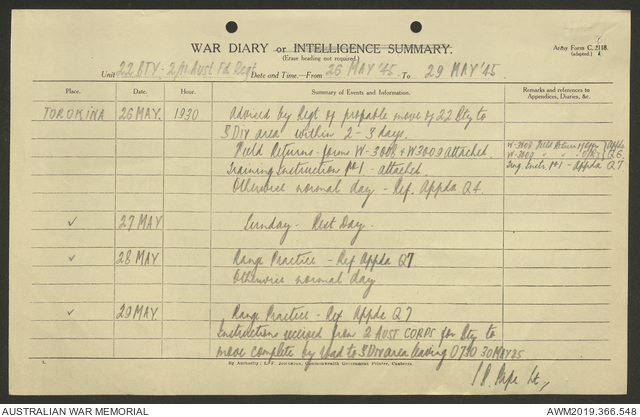 WAR DIARY or INTELLIGENCE SUMMARY.
(Erase heading not required.)
Army Form C. 2118.
(adapted.)
Unit 22 BTY - 2/11 Aust Fd Regt Date and Time.—From 26 MAY '45 To 29 MAY '45.
Place. Date. Hour. Summary of Events and Information. Remarks and references to Appendices, Diaries, &c.
TOROKINA 26 MAY. 1930 Advised by Regt of propable move of 22 Bty to
3 Div area within 2 - 3 days.
Field Returns - forms W-3008 & W3009 attached. W-3008 Field Return
W-3009 " " Q6.
Training Instruction No 1 - attached. Tng Instr No 1 - Appdx Q7
Otherwise normal day - Ref. Appdx Q4.
✓ 27 MAY Sunday - Rest Day.
✓ 28 MAY Range Practice - Ref Appdx Q7
Otherwise normal day
✓ 29 MAY. Range Practice - Ref Appdx Q7
Instructions received from 2 AUST CORPS for Bty to
move complete by road to 3 Div area leaving 0730 30 MAY 45
Lt,
By Authority: L. F. Johnston, Commonwealth Government Printer, Canberra.
AUSTRALIAN WAR MEMORIAL
AWM2019.366.548